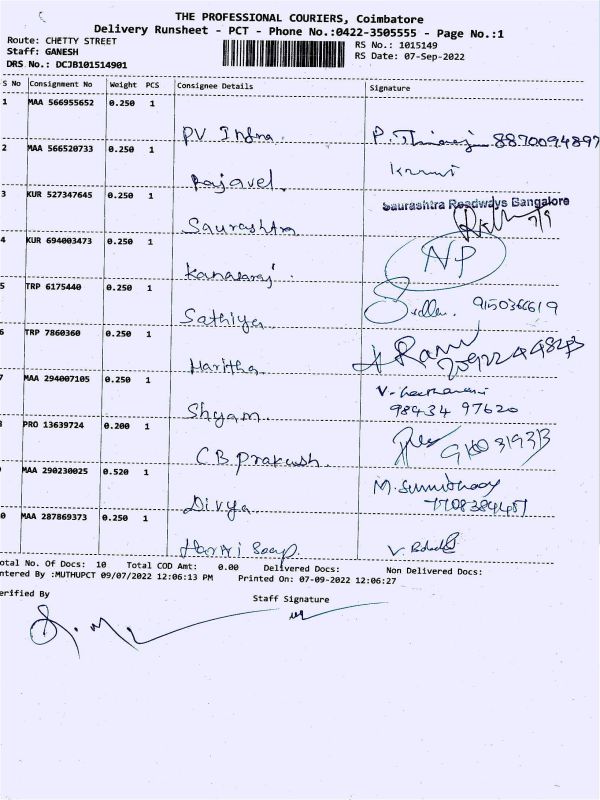 THE PROFESSIONAL COURIERS, Coimbatore
Delivery Runsheet - PCT - Phone No.:0422-3505555 - Page No.:1
Route: CHETTY STREET
RS No.: 1015149
Staff: GANESH
RS Date: 07-Sep-2022
DRS No.: DCJB101514901
S No Consignment No Weight PCS Consignee Details Signature
1 MAA 566955652 0.250 1
PV Infra. P. 8870094897
2 MAA 566520733 0.250 1
Rajavel.
3 KUR 527347645 0.250 1
Saurashtra Roadways Bangalore
Saurashtra 7/9
4 KUR 694003473 0.250 1
NP
Kanagaraj.
5 TRP 6175440 0.250 1
Sathiya 9150366619
6 TRP 7860360 0.250 1
Haritha
7 MAA 294007105 0.250 1
V.
Shyam. 98434 97620
8 PRO 13639724 0.200 1
CB Prakash.
9 MAA 290230025 0.520 1
M.
Divya
0 MAA 287869373 0.250 1
Hansi Soap. V.
otal No. Of Docs: 10 Total COD Amt: 0.00 Delivered Docs: Non Delivered Docs:
ntered By :MUTHUPCT 09/07/2022 12:06:13 PM Printed On: 07-09-2022 12:06:27
erified By Staff Signature